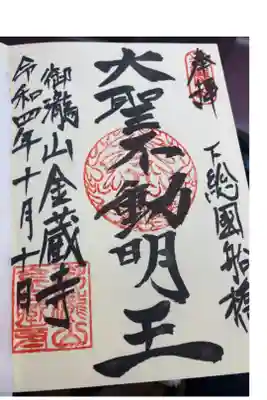 奉拝
下総國船橋
大聖不動明王
御瀧山金蔵寺
令和四年十月十日